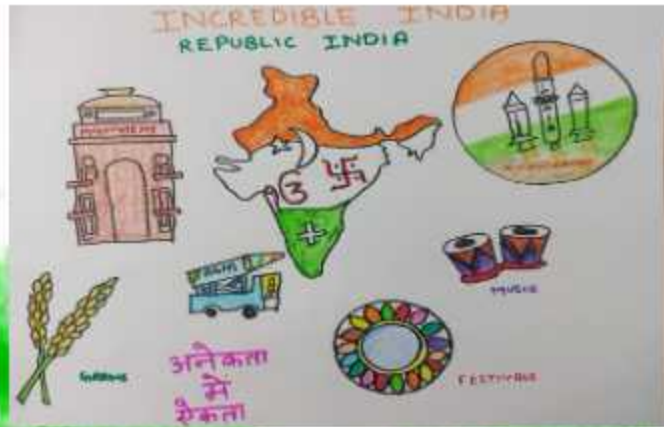 INCREDIBLE INDIA
REPUBLIC INDIA
MUSIC
अनेकता
में
ऐकता
FESTIVALS